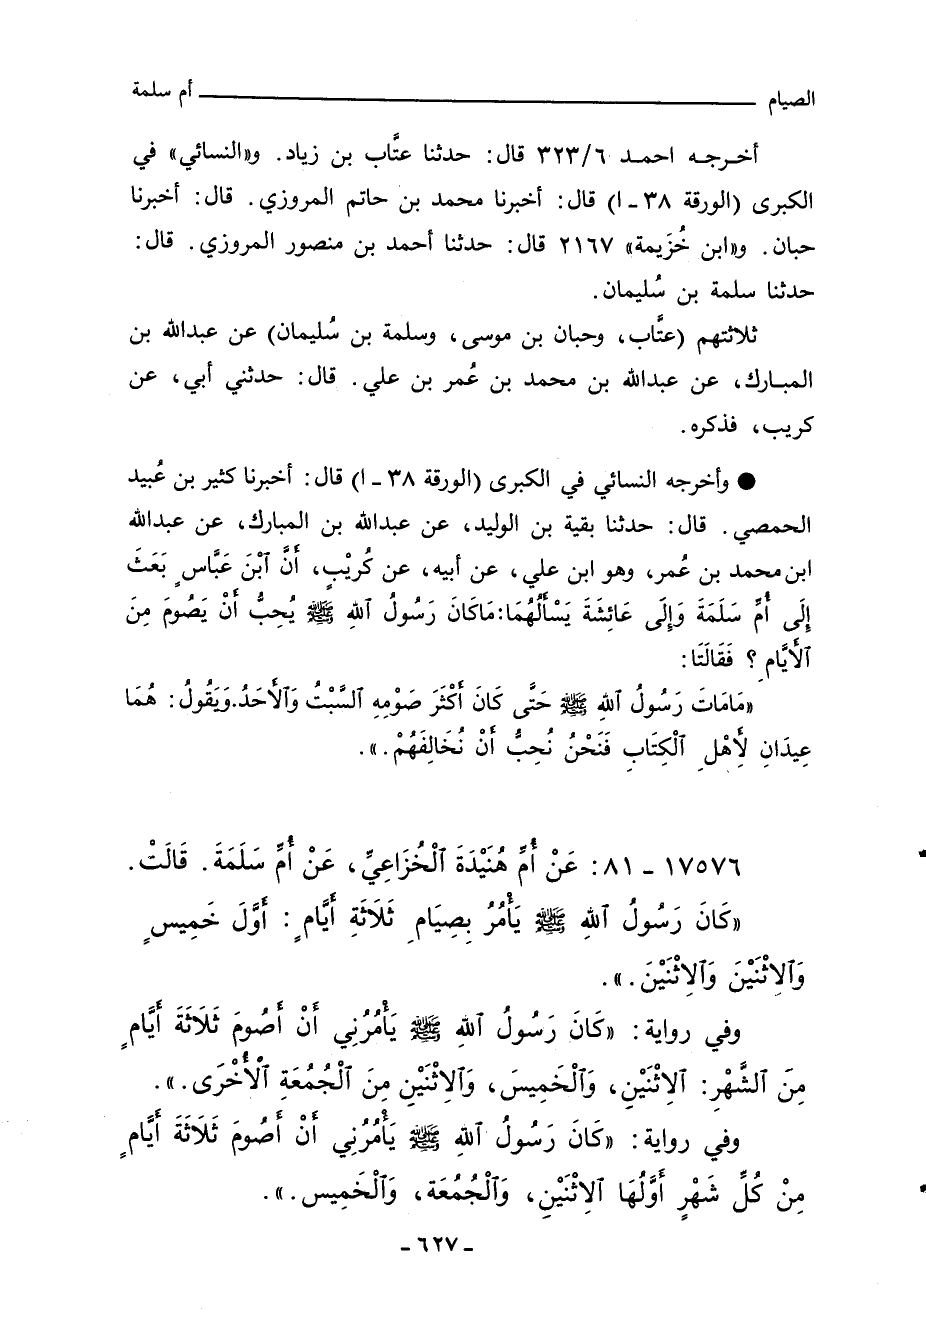 الصيام ـــــــــــــ أم سلمة
أخرجه احمد ٣٢٣/٦ قال: حدثنا عتَّاب بن زياد. و«النسائي» في
الكبرى (الورقة ٣٨ ـ ا) قال: أخبرنا محمد بن حاتم المروزي. قال: أخبرنا
حبان. و«ابن خُزَيمة» ٢١٦٧ قال: حدثنا أحمد بن منصور المروزي. قال:
حدثنا سلمة بن سُليمان.
ثلاثتهم (عتَّاب، وحبان بن موسى، وسلمة بن سُليمان) عن عبدالله بن
المبارك، عن عبدالله بن محمد بن عُمر بن علي. قال: حدثني أبي، عن
كريب، فذكره.
● وأخرجه النسائي في الكبرى (الورقة ٣٨ ـ ا) قال: أخبرنا كثير بن عُبيد
الحمصي. قال: حدثنا بقية بن الوليد، عن عبدالله بن المبارك، عن عبدالله
ابن محمد بن عُمر، وهو ابن علي، عن أبيه، عن كُرَيْبٍ، أَنَّ ٱبْنَ عَبَّاسٍ بَعَثَ
إِلَى أُمِّ سَلَمَةَ وَإِلَى عَائِشَةَ يَسْأَلُهُمَا: مَاكَانَ رَسُولُ ٱللهِ ﷺ يُحِبُّ أَنْ يَصُومَ مِنَ
ٱلأَيَّامِ؟ فَقَالَتَا:
«مَامَاتَ رَسُولُ ٱللهِ ﷺ حَتَّى كَانَ أَكْثَرَ صَوْمِهِ ٱلسَّبْتُ وَٱلأَحَدُ. وَيَقُولُ: هُمَا
عِيدَانِ لِأَهْلِ ٱلْكِتَابِ فَنَحْنُ نُحِبُّ أَنْ نُخَالِفَهُمْ.».
١٧٥٧٦ ـ ٨١: عَنْ أُمِّ هُنَيْدَةَ ٱلْخُزَاعِيِّ، عَنْ أُمِّ سَلَمَةَ. قَالَتْ.
«كَانَ رَسُولُ ٱللهِ ﷺ يَأْمُرُ بِصِيَامِ ثَلَاثَةِ أَيَّامٍ: أَوَّلَ خَمِيسٍ
وَٱلِاثْنَيْنَ وَٱلِاثْنَيْنَ.».
وفي رواية: «كَانَ رَسُولُ ٱللهِ ﷺ يَأْمُرُنِي أَنْ أَصُومَ ثَلَاثَةَ أَيَّامٍ
مِنَ ٱلشَّهْرِ: ٱلِاثْنَيْنِ، وَٱلْخَمِيسَ، وَٱلِاثْنَيْنِ مِنَ ٱلْجُمُعَةِ ٱلْأُخْرَى.».
وفي رواية: «كَانَ رَسُولُ ٱللهِ ﷺ يَأْمُرُنِي أَنْ أَصُومَ ثَلَاثَةَ أَيَّامٍ
مِنْ كُلِّ شَهْرٍ أَوَّلُهَا ٱلِاثْنَيْنِ، وَٱلْجُمُعَة، وَٱلْخَمِيس.».
ـ ٦٢٧ ـ